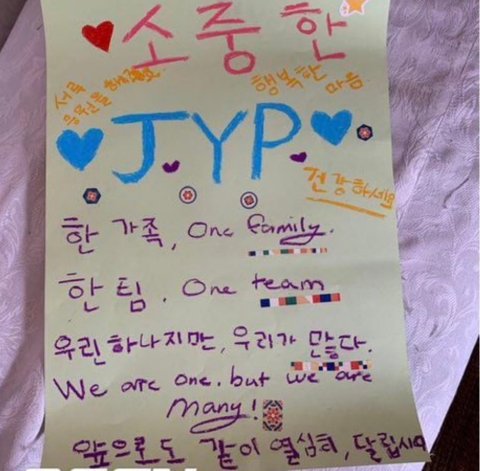 소중한
서로
응원을 해줘요
행복한
마음
JYP
건강하세요
한 가족, One family.
한 팀. One team
우린 하나지만, 우리가 만들다.
We are one. but we are
many!
앞으로도 같이 열심히, 달립시다